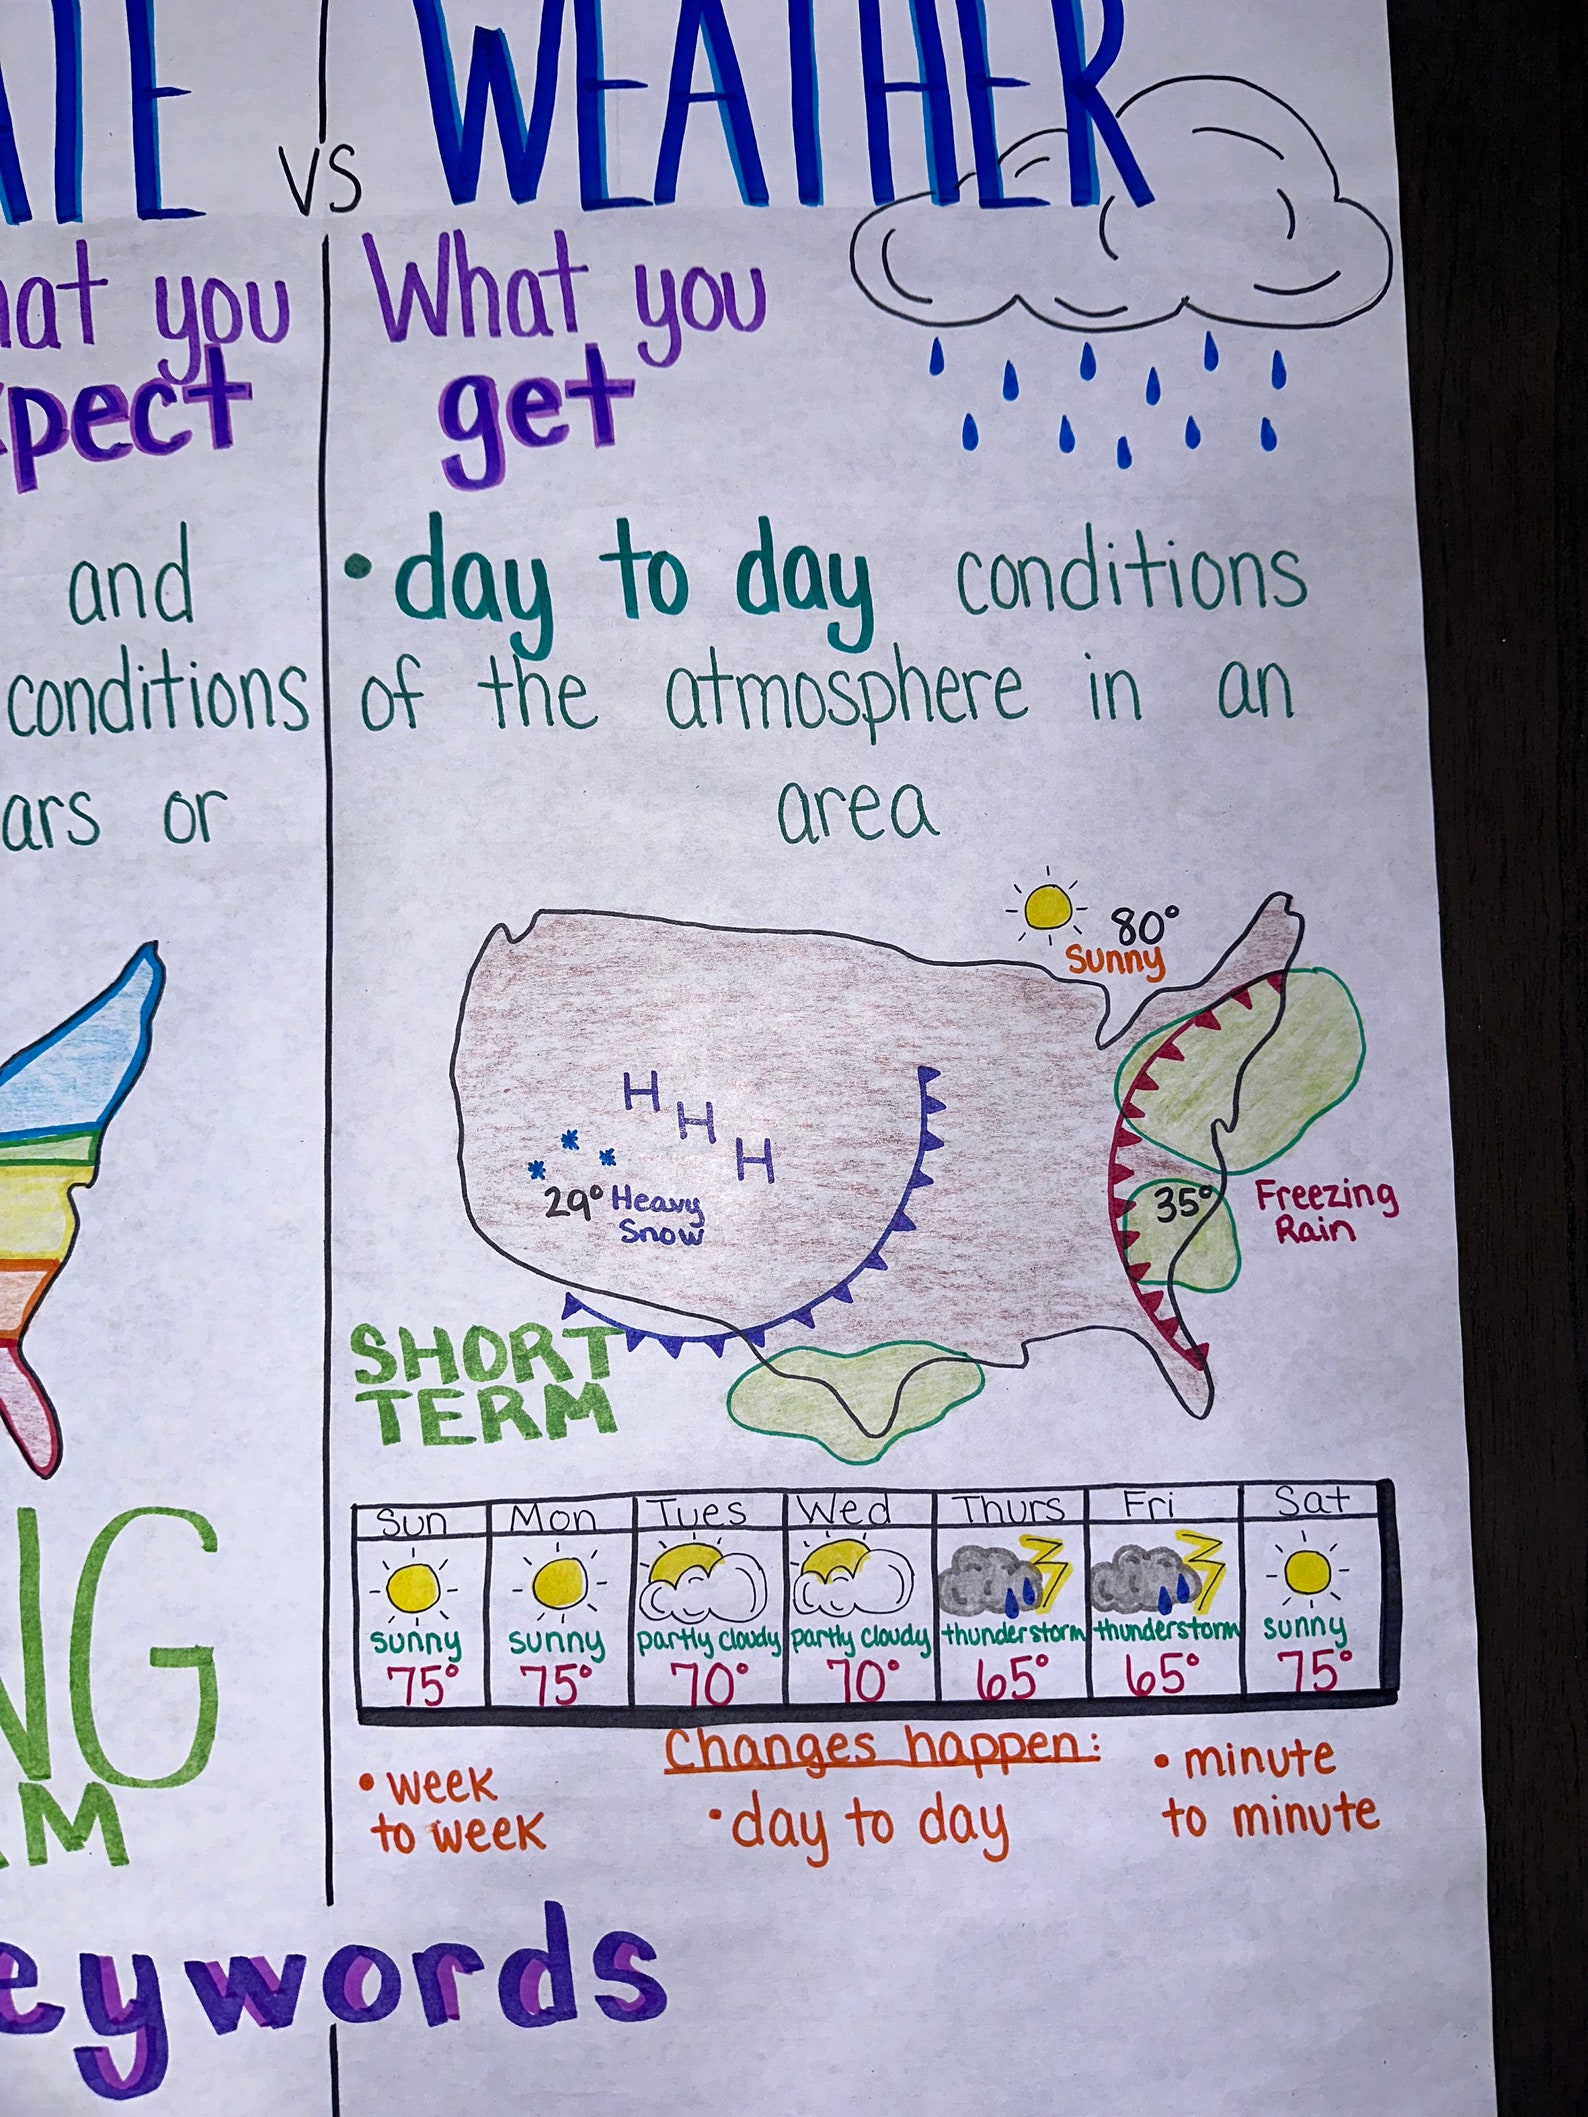 VS
WEATHER
What you
get
you
and
conditions
or
• day to day conditions
of the atmosphere in an
area
80°
Sunny
H
H
H
29° Heavy
Snow
35°
Freezing
Rain
SHORT
TERM
Sun Mon Tues Wed Thurs Fri Sat
sunny sunny partly cloudy partly cloudy thunderstorm thunderstorm sunny
75° 75° 70° 70° 65° 65° 75°
Changes happen:
• week
to week
• day to day
• minute
to minute